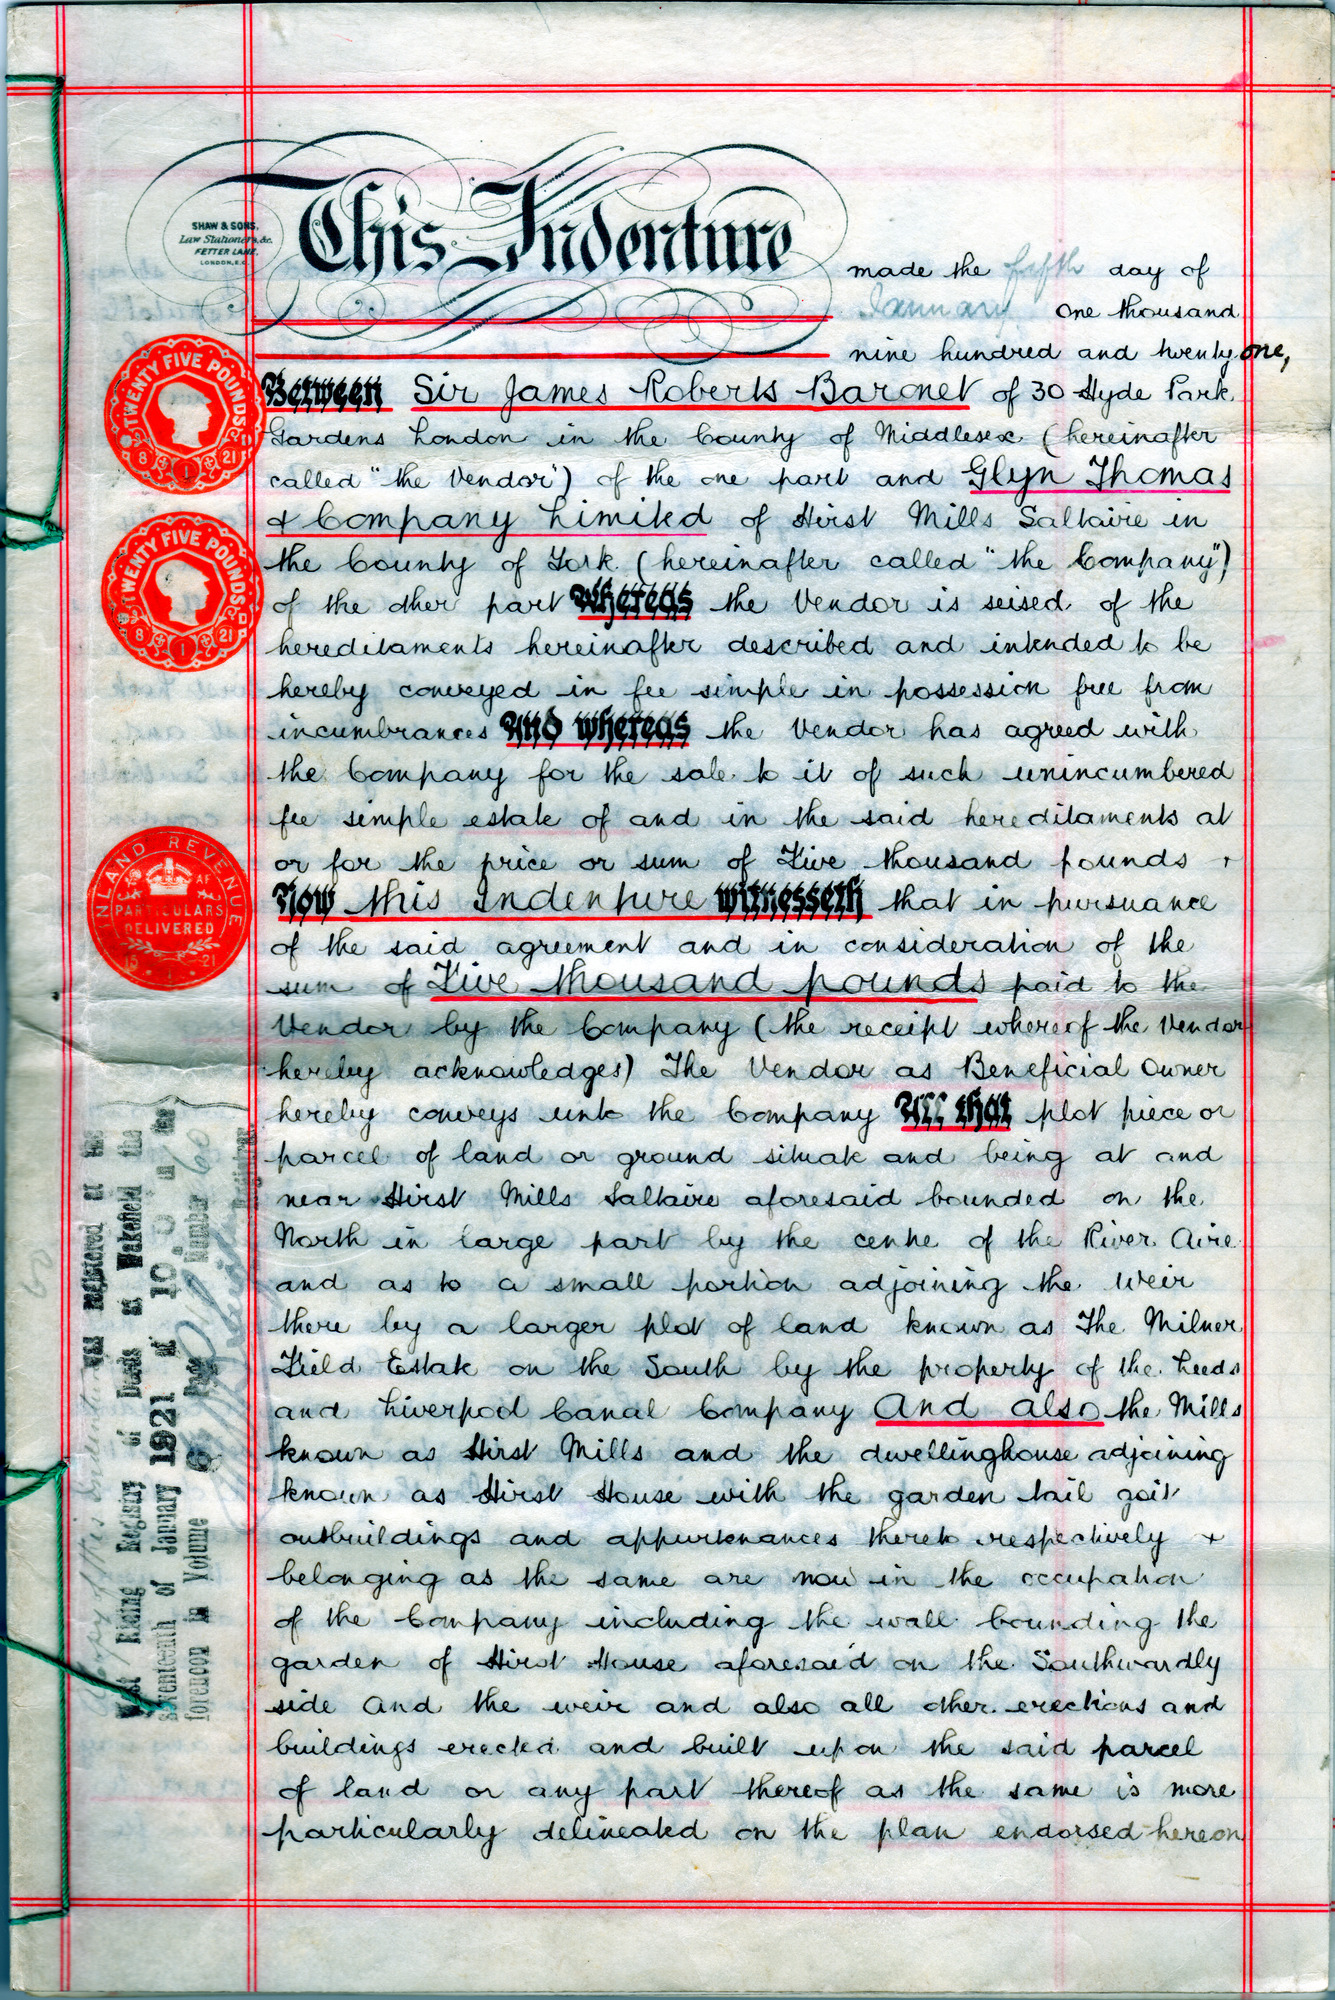 SHAW & SONS,
Law Stationers, &c.
FETTER LANE,
LONDON, E.C.
This Indenture made the fifth day of
January one thousand
nine hundred and twenty one,
Between Sir James Roberts Baronet of 30 Hyde Park
Gardens London in the County of Middlesex (hereinafter
called "the Vendor") of the one part and Glyn Thomas
& Company Limited of Hirst Mills Saltaire in
the County of York (hereinafter called "the Company")
of the other part Whereas the Vendor is seised of the
hereditaments hereinafter described and intended to be
hereby conveyed in fee simple in possession free from
incumbrances And whereas the Vendor has agreed with
the Company for the sale to it of such unincumbered
fee simple estate of and in the said hereditaments at
or for the price or sum of Five thousand pounds
Now this Indenture witnesseth that in pursuance
of the said agreement and in consideration of the
sum of Five thousand pounds paid to the
Vendor by the Company (the receipt whereof the Vendor
hereby acknowledges) The Vendor as Beneficial Owner
hereby conveys unto the Company All that plot piece or
parcel of land or ground situate and being at and
near Hirst Mills Saltaire aforesaid bounded on the
North in large part by the centre of the River Aire
and as to a small portion adjoining the Weir
there by a larger plot of land known as The Milner
Field Estate on the South by the property of the Leeds
and Liverpool Canal Company And also the Mills
known as Hirst Mills and the dwellinghouse adjoining
known as Hirst House with the garden tail goit
outbuildings and appurtenances thereto respectively
belonging as the same are now in the occupation
of the Company including the wall bounding the
garden of Hirst House aforesaid on the Southwardly
side And the weir and also all other erections and
buildings erected and built upon the said parcel
of land or any part thereof as the same is more
particularly delineated on the plan endorsed hereon
TWENTY FIVE POUNDS
8 1 21
TWENTY FIVE POUNDS
8 1 21
INLAND REVENUE
AF
PARTICULARS
DELIVERED
15 1 21
A copy of this Indenture was registered at the
West Riding Registry of Deeds at Wakefield the
seventeenth of January 1921 at 10.0 in the
forenoon in Volume 6 Page Number 60
Registrar